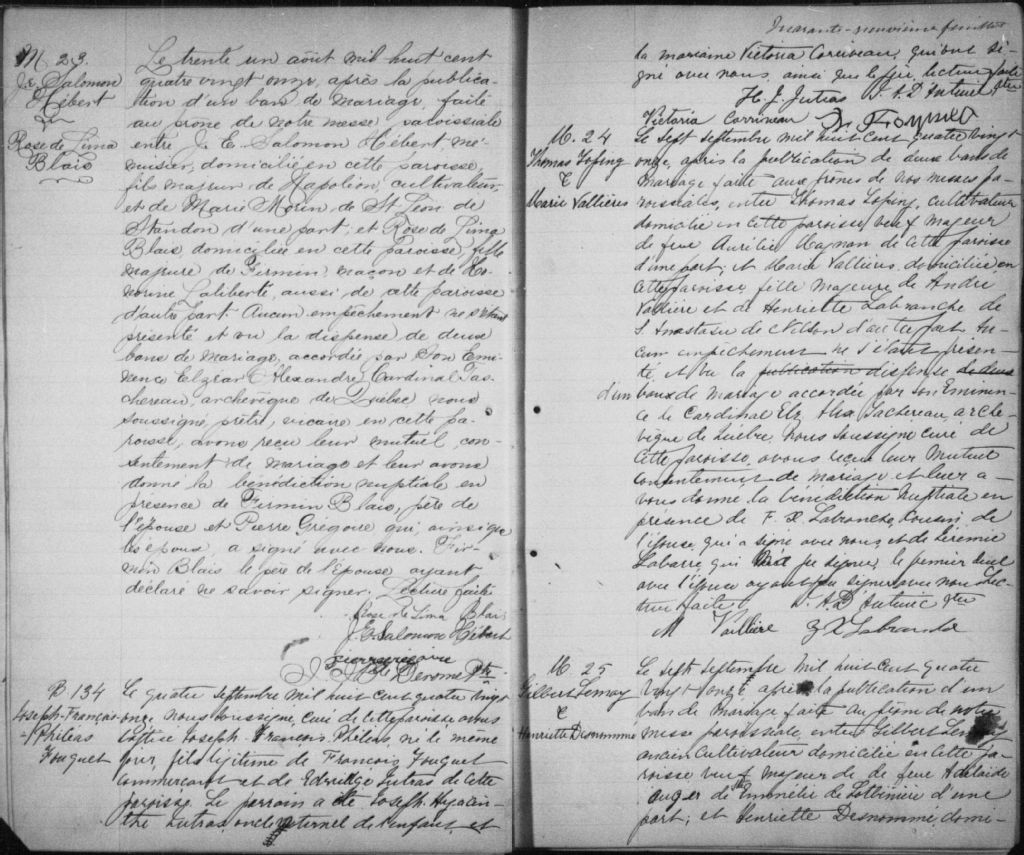 M. 23.
J.E. Salomon
Hébert
&
Rose de Lima
Blais
Le trente un août mil huit cent
quatre vingt onze, après la publica-
tion d'un ban de mariage, faite
au prone de notre messe paroissiale
entre J. E. Salomon Hébert, me-
nuisier, domicilié en cette paroisse,
fils majeur de Napoléon, cultivateur,
et de Marie Morin, de St Léon de
Standon d'une part; et Rose de Lima
Blais, domiciliée en cette Paroisse, fille
majeure de Firmin, maçon et de Ho-
norine Laliberté, aussi de cette paroisse
d'autre part. Aucun empêchement ne s'étant
présenté et vu la dispense de deux
bans de mariage, accordée par Son Emi-
nence Elzéar Alexandre Cardinal Tas-
chereau, archevêque de Québec nous
soussigné, prêtre, vicaire en cette pa-
roisse, avons reçu leur mutuel con-
sentement de mariage et leur avons
donné la bénédiction nuptiale en
présence de Firmin Blais, père de
l'épouse et Pierre Grégoire qui, ainsi que
les époux, a signé avec nous. Fir-
min Blais le père de l'Epouse ayant
déclaré ne savoir signer. Lecture faite
Rose de Lima Blais
J. E. Salomon Hébert
Pierre Grégoire
Derome Ptre
B. 134
Joseph-François-
Philéas
Fouquet
Le quatre septembre mil huit cent quatre vingt
onze nous soussigné, curé de cette paroisse avons
baptisé Joseph François Philéas, né le même
jour, fils légitime de François Fouquet
commerçant et de Edwidge Jutras de cette
paroisse. Le parrain a été Joseph Hyacin-
the Jutras oncle maternel de l'enfant, et
Quarante-neuvième feuillet
la marraine Victoria Corriveau, qui ont si-
gné avec nous, ainsi que le père, lecture faite
H. J. Jutras
Victoria Corriveau
M. 24
Thomas Topping
&
Marie Vallières
Le sept septembre mil huit cent quatre vingt
onze, après la publication de deux bans de
mariage faite aux prônes de nos messes pa-
roissiales, entre Thomas Topping, cultivateur
domicilié en cette paroisse, veuf majeur
de feue Aurélie Magnan de cette paroisse
d'une part; et Marie Vallières, domiciliée en
cette paroisse, fille majeure de André
Vallière et de Henriette Labranche de
S. Anastasie de Nelson d'autre part. Au-
cun empêchement ne s'étant présen-
té et vu la publication dispense de deux
d'un bans de mariage accordée par son Eminen-
ce le Cardinal Elz. Alex. Tachereau, arche-
vêque de Québec, Nous soussigné curé de
cette paroisse, avons reçu leur mutuel
consentement de mariage et leur a-
vons donné la bénédiction nuptiale en
présence de F. X. Labranche, Cousin de
l'épouse, qui a signé avec nous, et de Jérémie
Labarre, qui n'a pu signer, le premier seul
avec l'épouse ayant pu signer avec nous Lec-
ture faite
M Vallière
F X Labranche
M. 25
Gilbert Lemay
&
Henriette Desnommé
Le sept septembre mil huit cent quatre
vingt onze, après la publication d'un
ban de mariage faite au prône de notre
messe paroissiale, entre Gilbert Lemay
ancien cultivateur domicilié en cette pa-
roisse veuf majeur de de feue Adelaide
Auger de St Emmélie de Lotbinière d'une
part; et Henriette Desnommé domi-